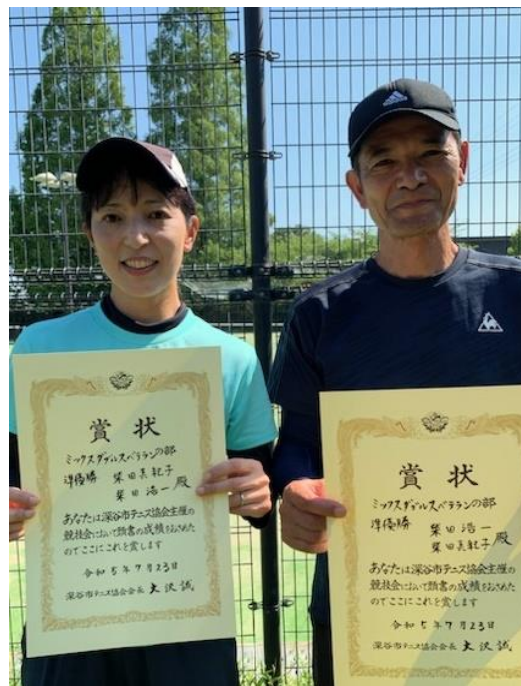 賞状
ミックスダブルスベテランの部
準優勝 柴田真紀子
柴田浩一 殿
あなたは深谷市テニス協会主催の
競技会において頭書の成績をおさめた
のでここにこれを賞します
令和5年7月23日
深谷市テニス協会会長 大沢誠
賞状
ミックスダブルスベテランの部
準優勝 柴田浩一
柴田真紀子 殿
あなたは深谷市テニス協会主催の
競技会において頭書の成績をおさめた
のでここにこれを賞します
令和5年7月23日
深谷市テニス協会会長 大沢誠